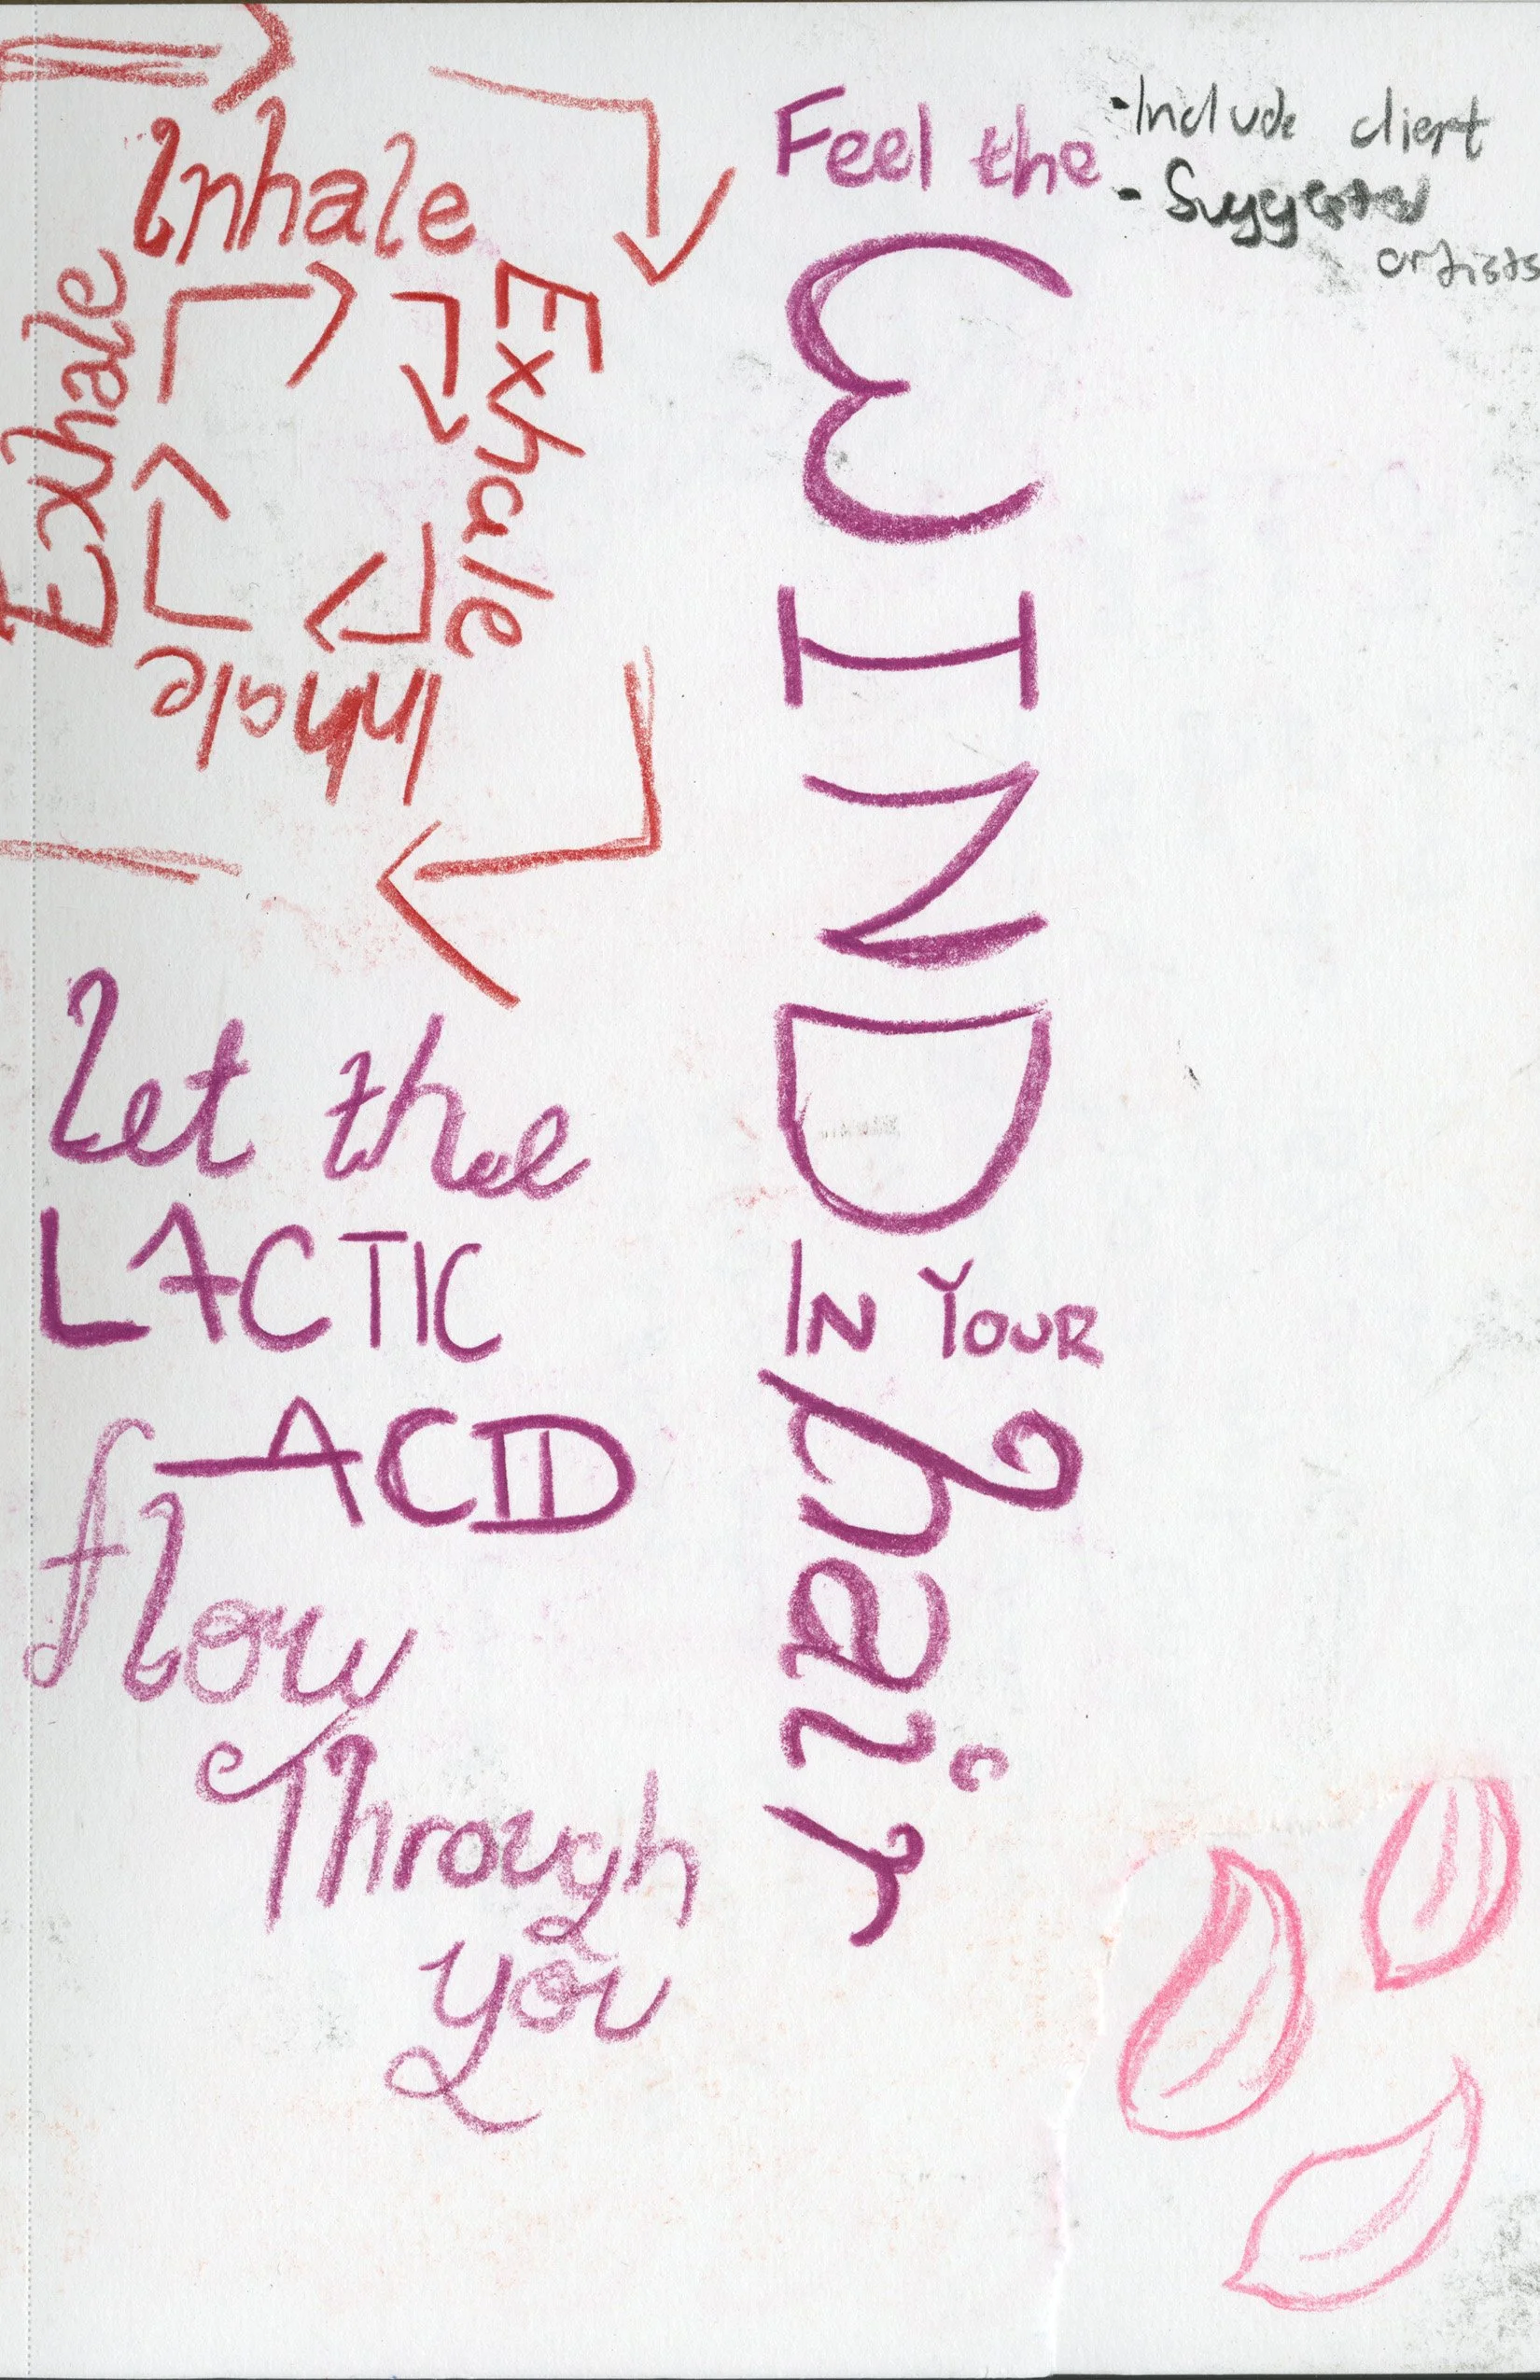 Inhale
Exhale
Inhale
Exhale
Let the
LACTIC
ACID
flow
Through
you
Feel the
WIND
IN YOUR
hair
- Include client
- Suggested
artists